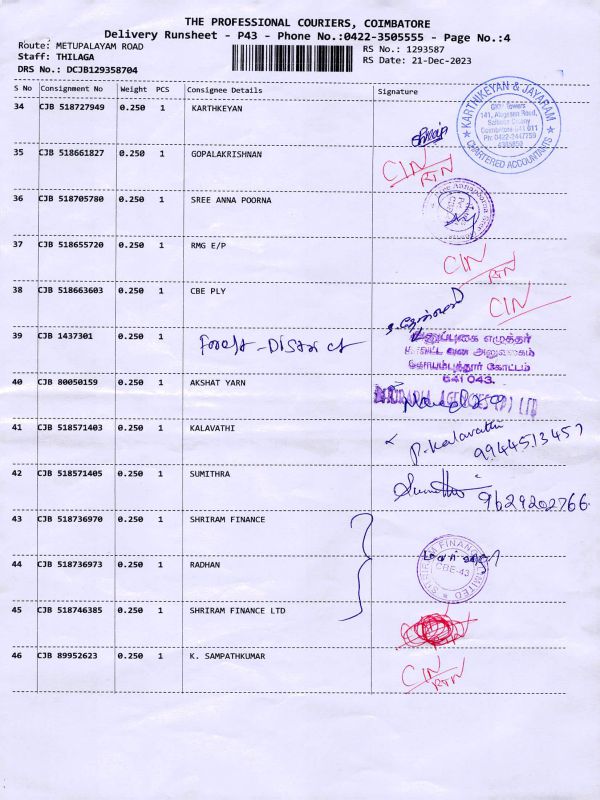 THE PROFESSIONAL COURIERS, COIMBATORE
Delivery Runsheet - P43 - Phone No.:0422-3505555 - Page No.:4
Route: METUPALAYAM ROAD
RS No.: 1293587
Staff: THILAGA
RS Date: 21-Dec-2023
DRS No.: DCJB129358704
S No Consignment No Weight PCS Consignee Details Signature
34 CJB 518727949 0.250 1 KARTHKEYAN
KARTHIKEYAN & JAYARAM
CHARTERED ACCOUNTANTS
35 CJB 518661827 0.250 1 GOPALAKRISHNAN CIN
RTN
36 CJB 518705780 0.250 1 SREE ANNA POORNA
37 CJB 518655720 0.250 1 RMG E/P CIN
RTN
38 CJB 518663603 0.250 1 CBE PLY CIN
39 CJB 1437301 0.250 1
கோயம்புத்தூர் கோட்டம்
641 043.
40 CJB 80050159 0.250 1 AKSHAT YARN
41 CJB 518571403 0.250 1 KALAVATHI P. Kalavathi
9944513457
42 CJB 518571405 0.250 1 SUMITHRA 9629202766
43 CJB 518736970 0.250 1 SHRIRAM FINANCE
44 CJB 518736973 0.250 1 RADHAN
CBE-43
45 CJB 518746385 0.250 1 SHRIRAM FINANCE LTD
46 CJB 89952623 0.250 1 K. SAMPATHKUMAR CIN
RTN